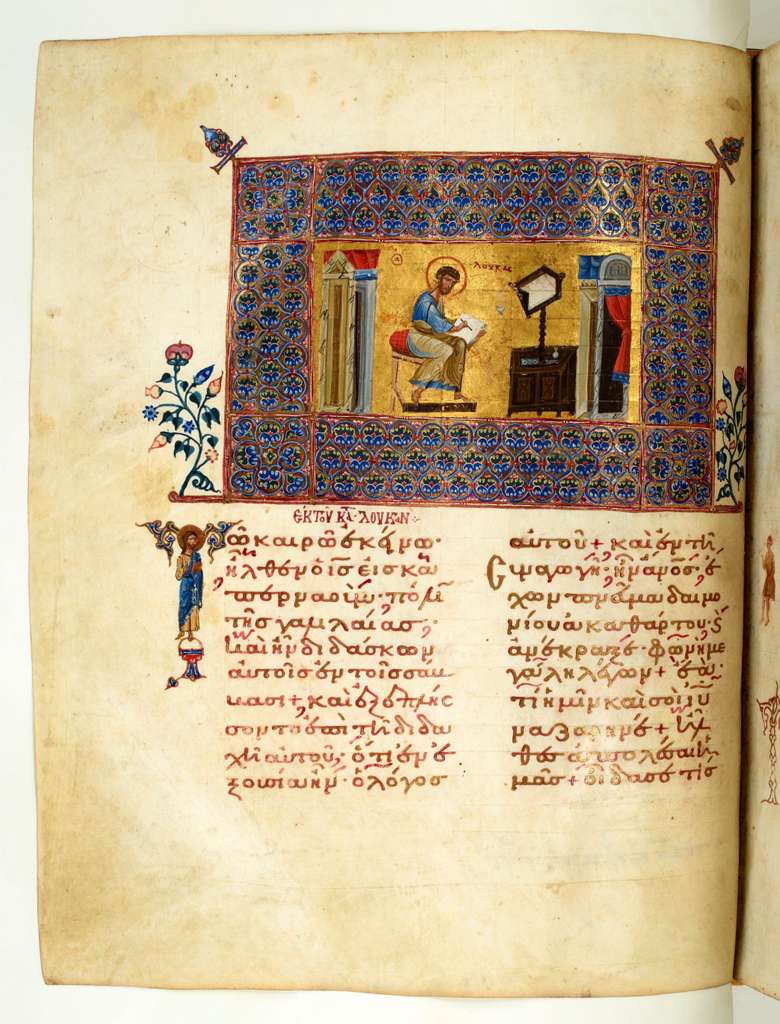 Ὁ ΛΟΥΚΑΣ
ΕΚ ΤΟΥ ΚΑΤ ΛΟΥΚΑΝ
Τῶ καιρῶ ἐκείνω·
ἦλθεν ὁ ἰς εἰς κα
περναούμ· πόλιν
τῆς γαλιλαίας·
καὶ ἦν διδάσκων
αὐτοῖς ἐν τοῖς σάβ
βασι+ καὶ ἐξεπλήσ
σοντο ἐπὶ τῆ διδα
χῆ αὐτοῦ, ὅτι ἐν ἐ
ξουσία ἦν ὁ λόγος
αὐτοῦ+ καὶ ἐν τῆ
συναγωγῆ, ἦν ἄνος ἔ
χων πνεῦμα δαιμο
νίου ἀκαθάρτου, ϗ
ἀνέκραξε φωνῆ με
γάλη λέγων+ ἔα·
τί ἡμῖν καὶ σοὶ ἰῦ
ναζαρηνέ+ ἦλ
θες ἀπολέσαι ἡ
μᾶς+ οἶδά σε τίς